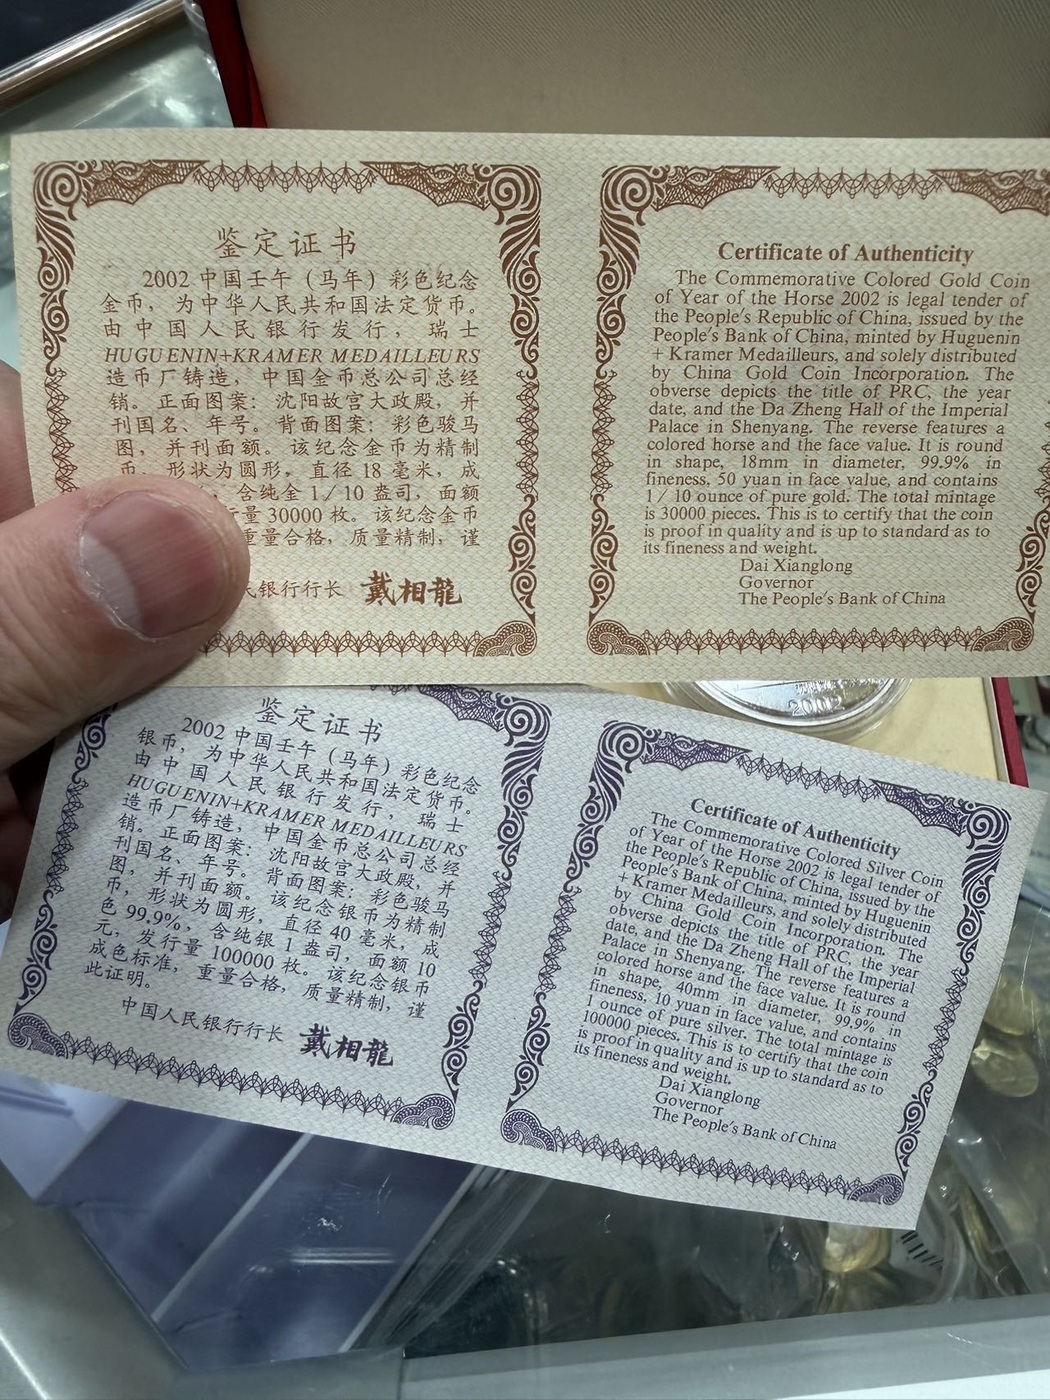 鉴定证书
2002 中国壬午（马年）彩色纪念
金币，为中华人民共和国法定货币。
由中国人民银行发行，瑞士
HUGUENIN+KRAMER MEDAILLEURS
造币厂铸造，中国金币总公司总经
销。正面图案：沈阳故宫大政殿，并
刊国名、年号。背面图案：彩色骏马
图，并刊面额。该纪念金币为精制
币，形状为圆形，直径 18 毫米，成
含纯金 1/10 盎司，面额
量 30000 枚。该纪念金币
重量合格，质量精制，谨
民银行行长 戴相龍
Certificate of Authenticity
The Commemorative Colored Gold Coin
of Year of the Horse 2002 is legal tender of
the People's Republic of China, issued by the
People's Bank of China, minted by Huguenin
+ Kramer Medailleurs, and solely distributed
by China Gold Coin Incorporation. The
obverse depicts the title of PRC, the year
date, and the Da Zheng Hall of the Imperial
Palace in Shenyang. The reverse features a
colored horse and the face value. It is round
in shape, 18mm in diameter, 99.9% in
fineness, 50 yuan in face value, and contains
1/10 ounce of pure gold. The total mintage
is 30000 pieces. This is to certify that the coin
is proof in quality and is up to standard as to
its fineness and weight.
Dai Xianglong
Governor
The People's Bank of China
2002
鉴定证书
2002 中国壬午（马年）彩色纪念
银币，为中华人民共和国法定货币。
由中国人民银行发行，瑞士
HUGUENIN+KRAMER MEDAILLEURS
造币厂铸造，中国金币总公司总经
销。正面图案：沈阳故宫大政殿，并
刊国名、年号。背面图案：彩色骏马
图，并刊面额。该纪念银币为精制
币，形状为圆形，直径 40 毫米，成
色 99.9%，含纯银 1 盎司，面额 10
元，发行量 100000 枚。该纪念银币
成色标准，重量合格，质量精制，谨
此证明。
中国人民银行行长 戴相龍
Certificate of Authenticity
The Commemorative Colored Silver Coin
of Year of the Horse 2002 is legal tender of
the People's Republic of China, issued by the
People's Bank of China, minted by Huguenin
+ Kramer Medailleurs, and solely distributed
by China Gold Coin Incorporation. The
obverse depicts the title of PRC, the year
date, and the Da Zheng Hall of the Imperial
Palace in Shenyang. The reverse features a
colored horse and the face value. It is round
in shape, 40mm in diameter, 99.9% in
fineness, 10 yuan in face value, and contains
1 ounce of pure silver. The total mintage is
100000 pieces. This is to certify that the coin
is proof in quality and is up to standard as to
its fineness and weight.
Dai Xianglong
Governor
The People's Bank of China